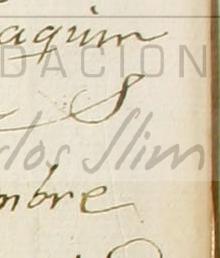 aquin
DACION
S
los Slim
mbre